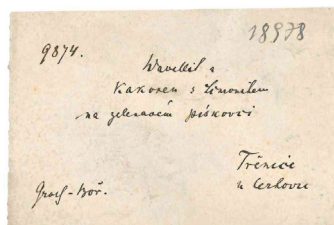 18978
9874.
Wavellit a
Kakoxen s limonitem
na zelenavém pískovci
Třenice
u Cerhovic